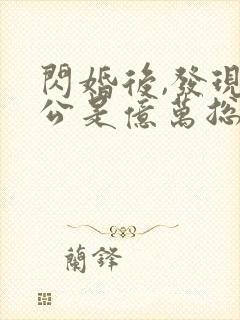 閃婚後,發現
公是億萬總
蘭鐸